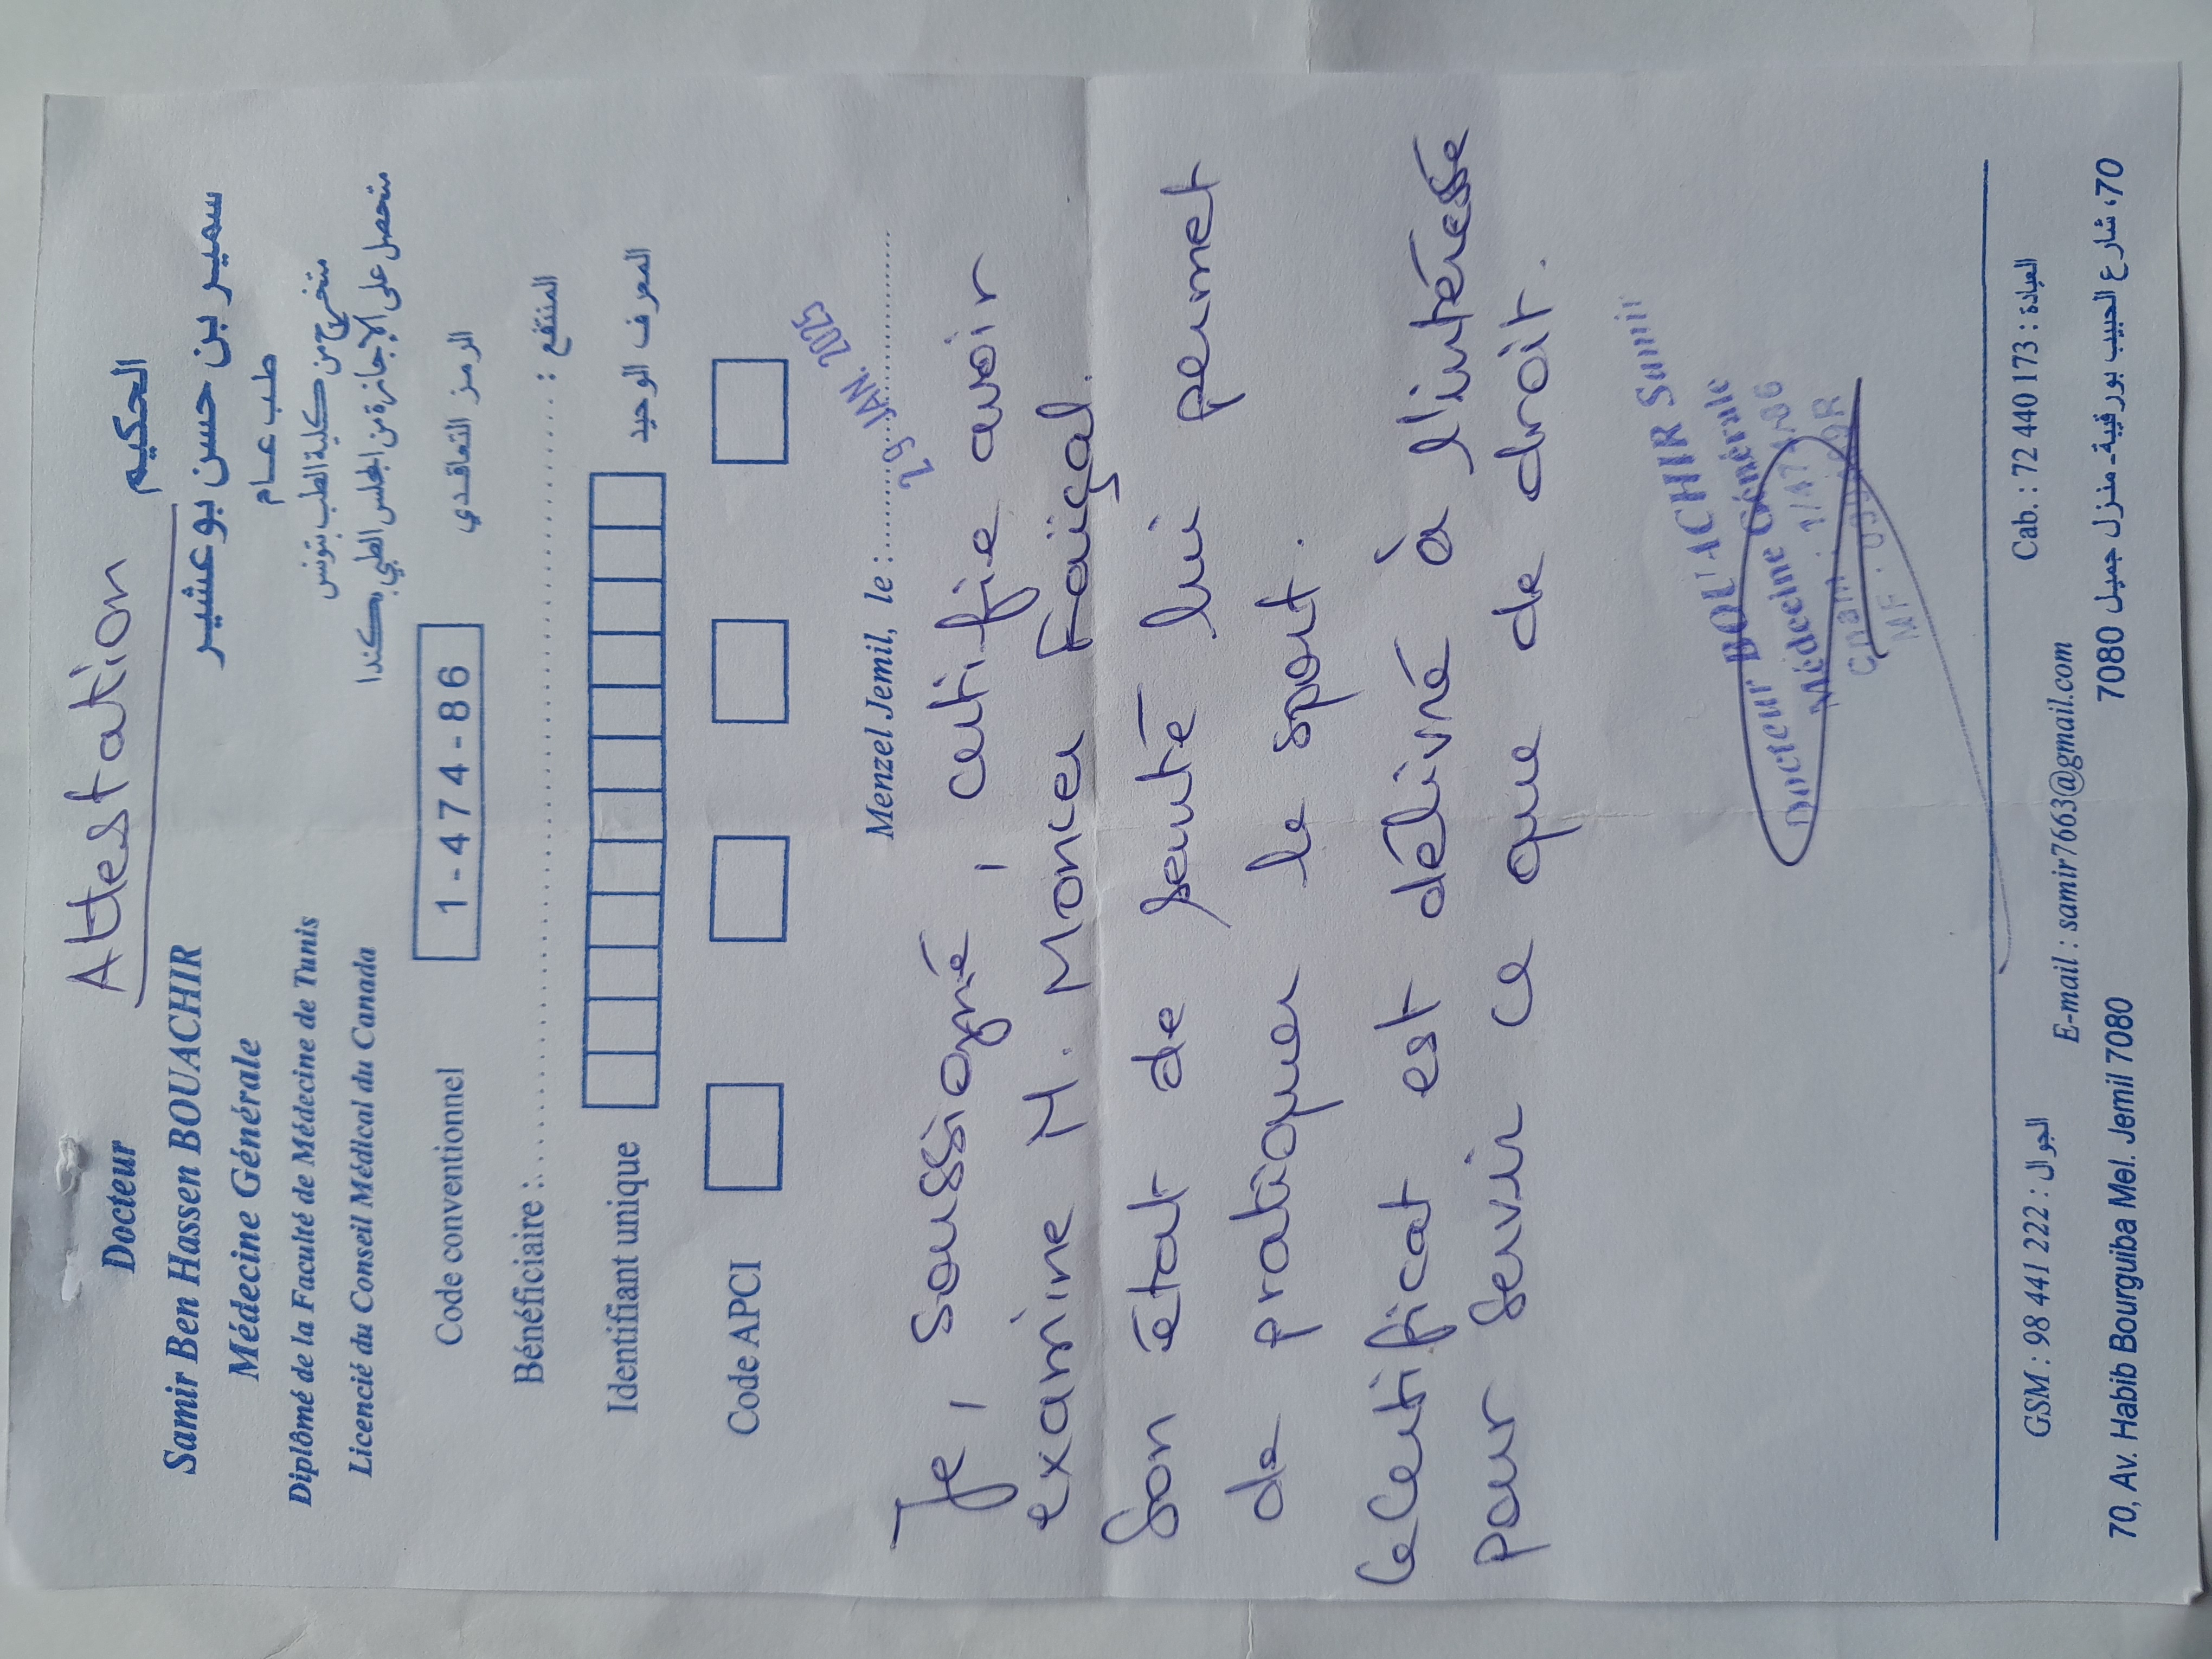 Attestation
Docteur
Samir Ben Hassen BOUACHIR
Médecine Générale
Diplômé de la Faculté de Médecine de Tunis
Licencié du Conseil Médical du Canada
الحكيم
سمير بن حسن بوعشير
طب عام
متخرج من كلية الطب بتونس
متحصل على الإجازة من المجلس الطبي بكندا
Code conventionnel 1-474-86 الرمز التعاقدي
Bénéficiaire : المنتفع :
Identifiant unique المعرف الوحيد
Code APCI
Menzel Jemil, le : 29 JAN. 2025
Je, soussigné, certifie avoir
examine M. Moncer Faiçal.
Son état de santé lui permet
de pratiquer le sport.
Ce Certificat est délivré à l'intéressé
pour servir ce que de droit.
Docteur BOUACHIR Samir
Médecine Générale
GSM : 98 441 222 : الجوال
Cab. : 72 440 173 : العيادة
E-mail : samir7663@gmail.com
70, Av. Habib Bourguiba Mel. Jemil 7080
70، شارع الحبيب بورقيبة - منزل جميل 7080